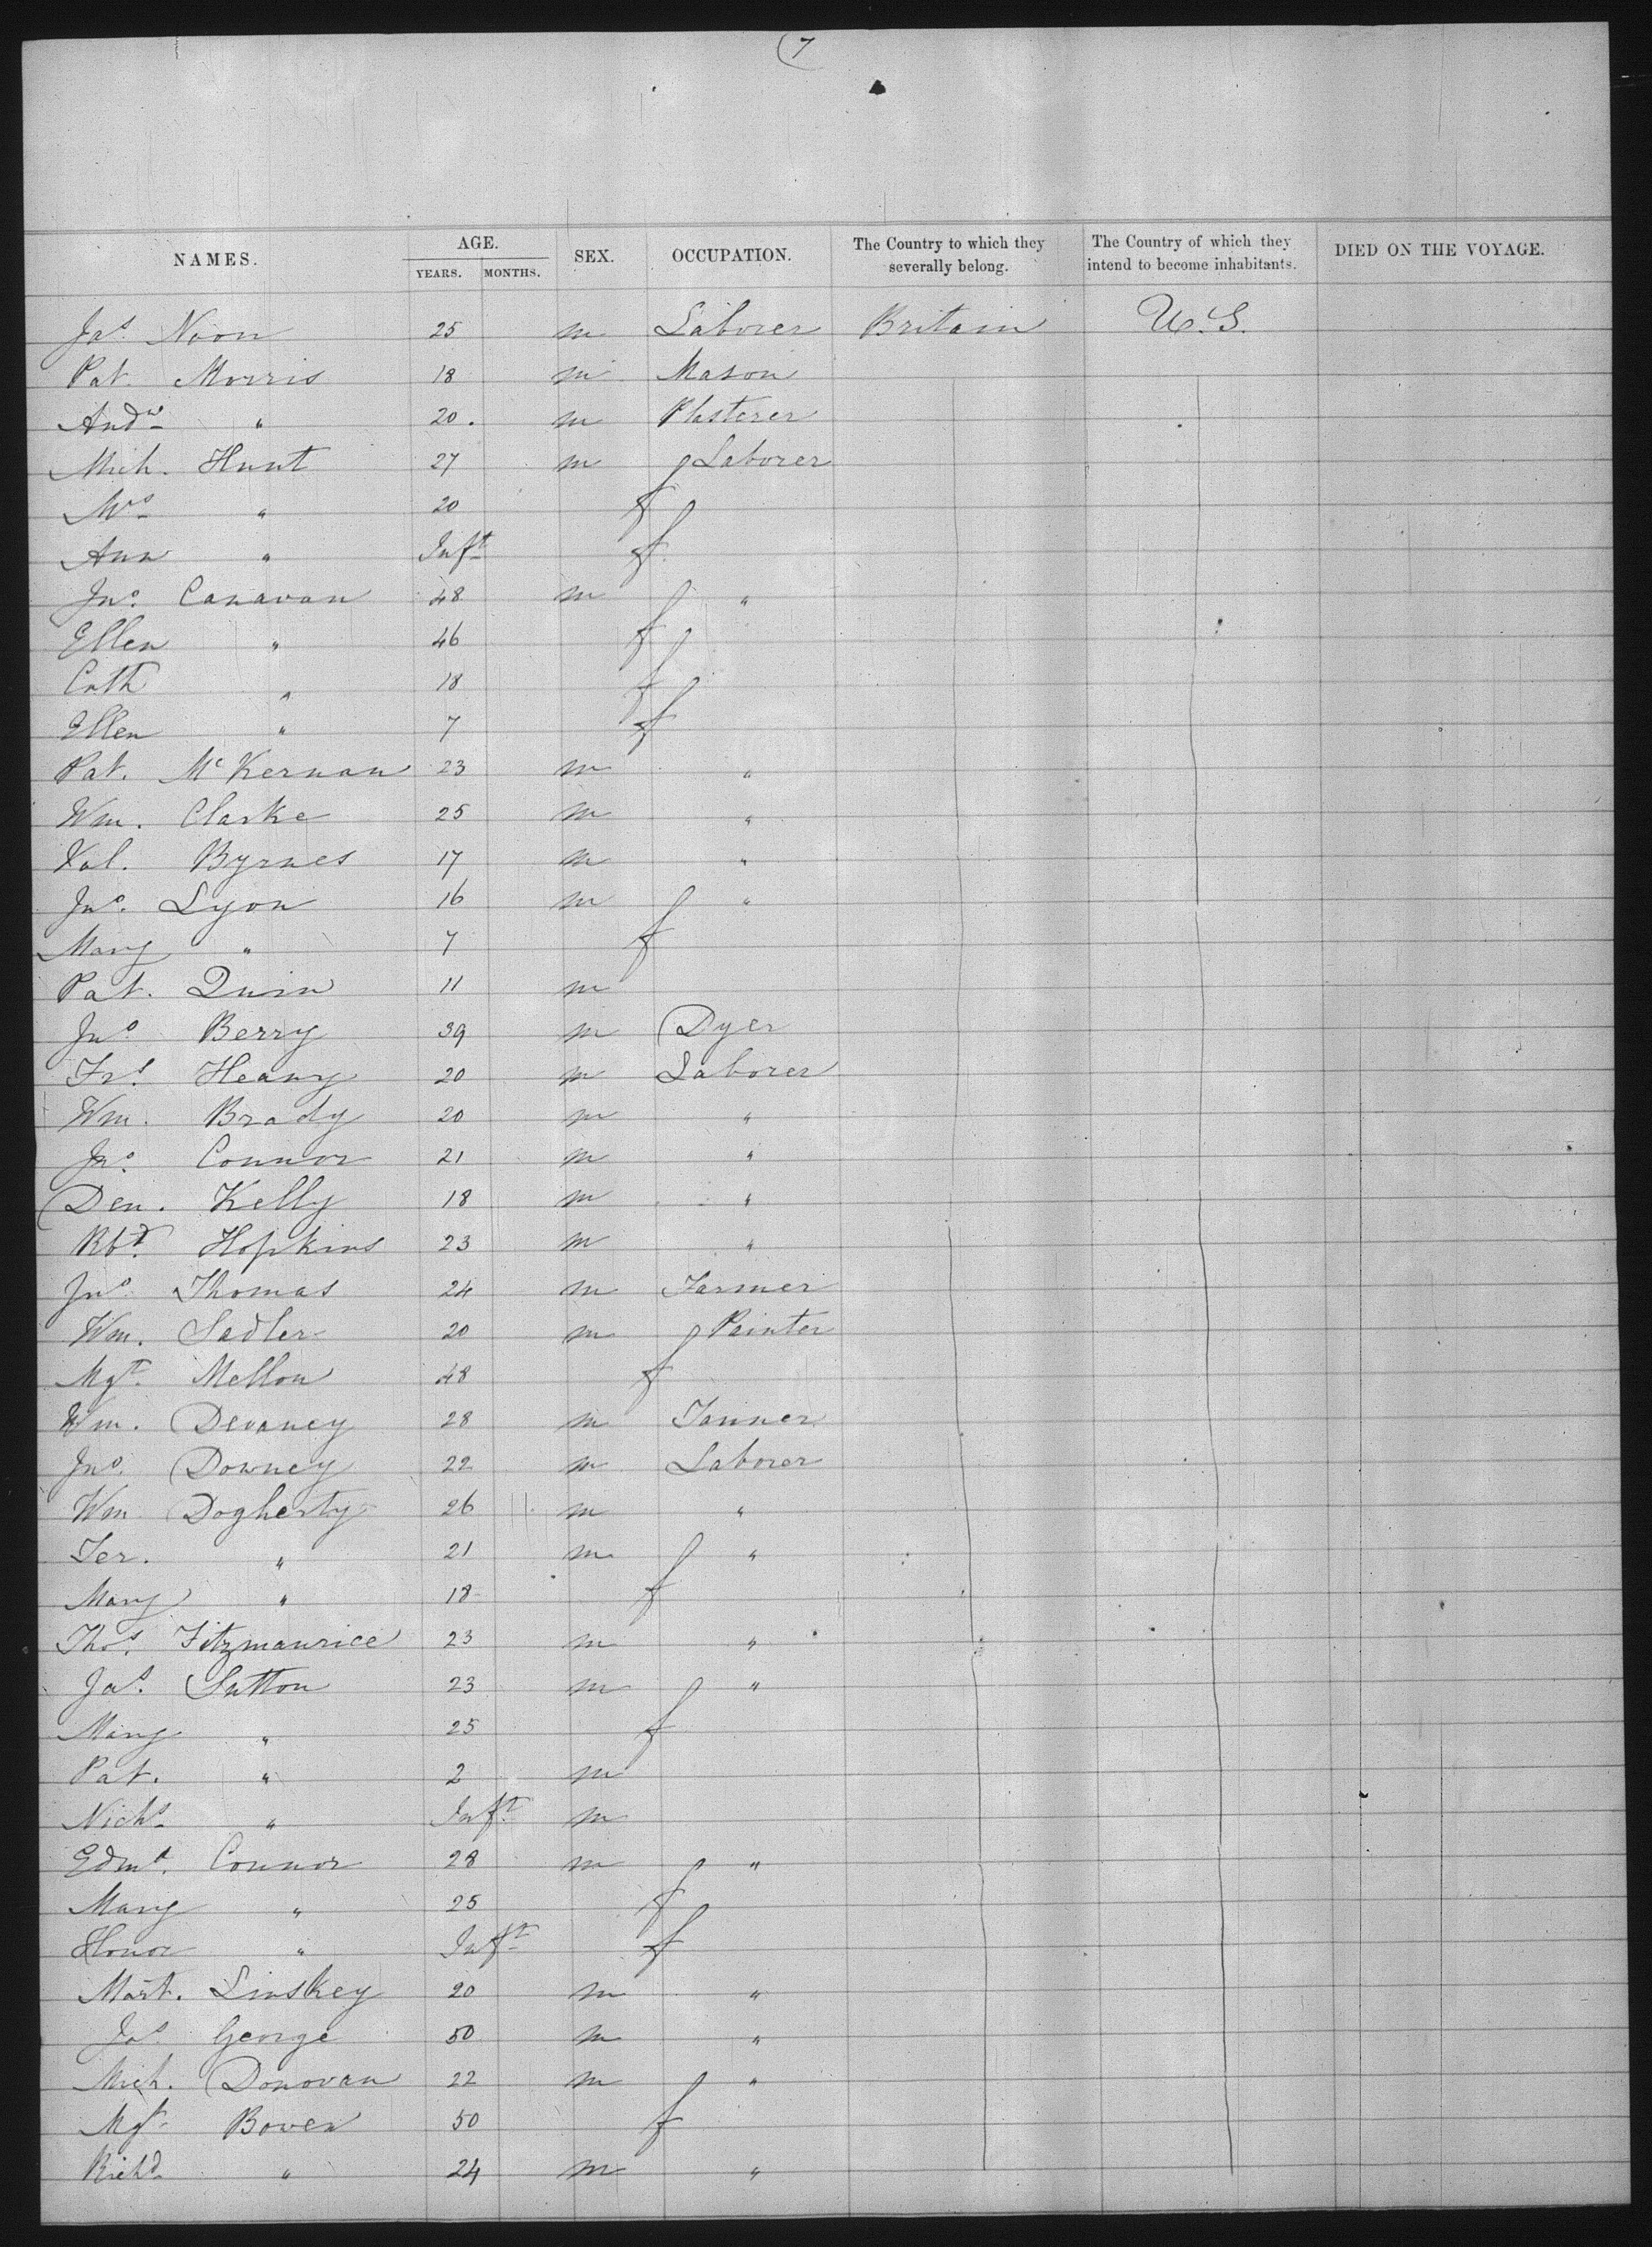 7
NAMES. AGE. YEARS. MONTHS. SEX. OCCUPATION. The Country to which they severally belong. The Country of which they intend to become inhabitants. DIED ON THE VOYAGE.
Jas. Noon 25 m Laborer Britain U.S.
Pat. Morris 18 m Mason
Andw " 20. m Plasterer
Mich. Hunt 27 m Laborer
Mrs " 20 f
Ann " Inft f
Jno. Canavan 48 m "
Ellen " 46 f
Cath " 18 f
Ellen " 7 f
Pat. McKernan 23 m "
Wm. Clarke 25 m "
Val. Byrnes 17 m "
Jno. Lyon 16 m "
Mary " 7 f
Pat. Quin 11 m
Jno Berry 39 m Dyer
Frs. Heany 20 m Laborer
Wm. Brady 20 m "
Jno. Connor 21 m "
Den. Kelly 18 m "
Rbt. Hopkins 23 m "
Jno. Thomas 24 m Farmer
Wm. Sadler 20 m Painter
Mgt. Mellon 48 f
Wm. Devaney 28 m Tanner
Jno. Downey 22 m Laborer
Wm. Dogherty 26 m "
Ter. " 21 m "
Mary " 18 f
Thos. Fitzmaurice 23 m "
Jas. Sutton 23 m "
Mary " 25 f
Pat. " 2 m
Nichs " Inft. m
Edmd. Connor 28 m "
Mary " 25 f
Honor " Inft f
Mart. Linskey 20 m "
Jas. George 50 m "
Mich. Donovan 22 m "
Mgt. Bowen 50 f
Richd " 24 m "